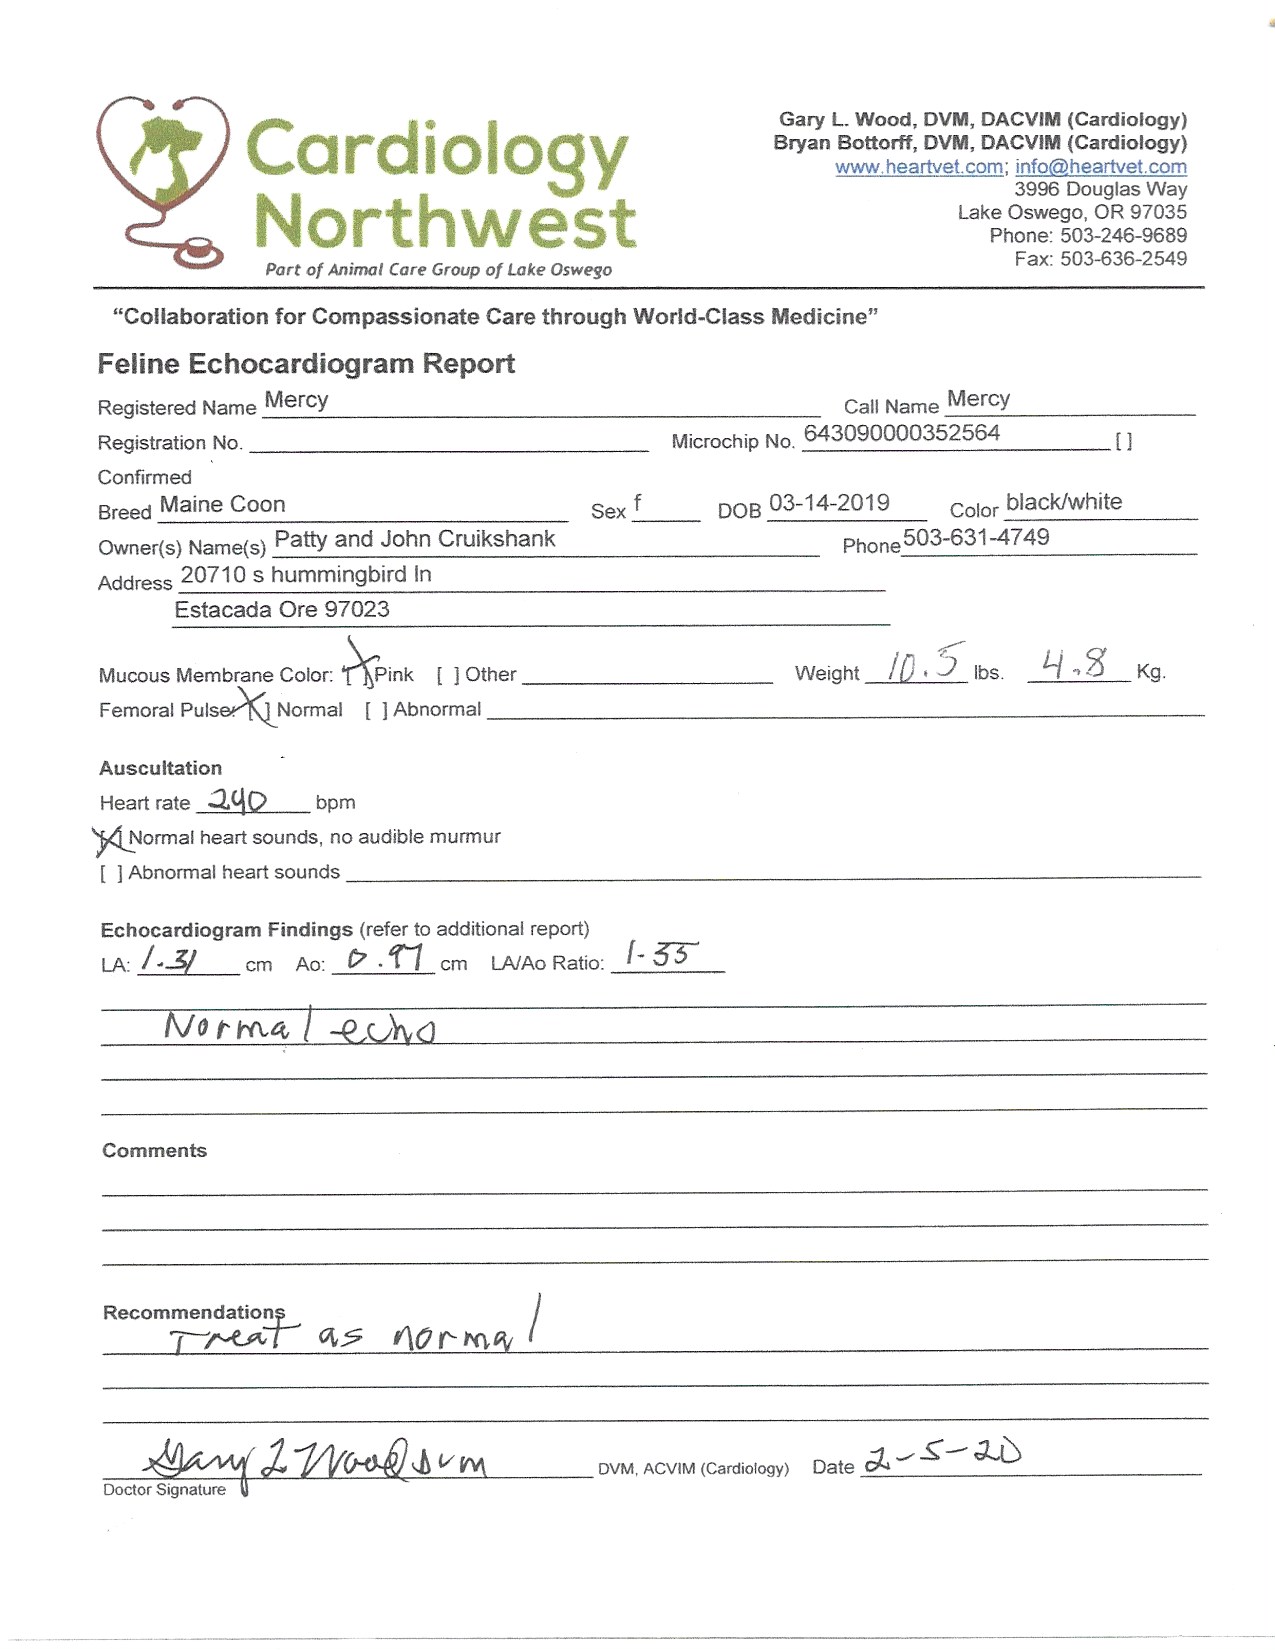 Cardiology
Northwest
Part of Animal Care Group of Lake Oswego
Gary L. Wood, DVM, DACVIM (Cardiology)
Bryan Bottorff, DVM, DACVIM (Cardiology)
www.heartvet.com; info@heartvet.com
3996 Douglas Way
Lake Oswego, OR 97035
Phone: 503-246-9689
Fax: 503-636-2549
“Collaboration for Compassionate Care through World-Class Medicine”
Feline Echocardiogram Report
Registered Name Mercy Call Name Mercy
Registration No. Microchip No. 643090000352564 [ ]
Confirmed
Breed Maine Coon Sex f DOB 03-14-2019 Color black/white
Owner(s) Name(s) Patty and John Cruikshank Phone 503-631-4749
Address 20710 s hummingbird ln
Estacada Ore 97023
Mucous Membrane Color: [X] Pink [ ] Other Weight 10.5 lbs. 4.8 Kg.
Femoral Pulse: [X] Normal [ ] Abnormal
Auscultation
Heart rate 240 bpm
[X] Normal heart sounds, no audible murmur
[ ] Abnormal heart sounds
Echocardiogram Findings (refer to additional report)
LA: 1.31 cm Ao: 0.97 cm LA/Ao Ratio: 1-35
Normal echo
Comments
Recommendations
Treat as normal
Gary L Wood DVM DVM, ACVIM (Cardiology) Date 2-5-20
Doctor Signature